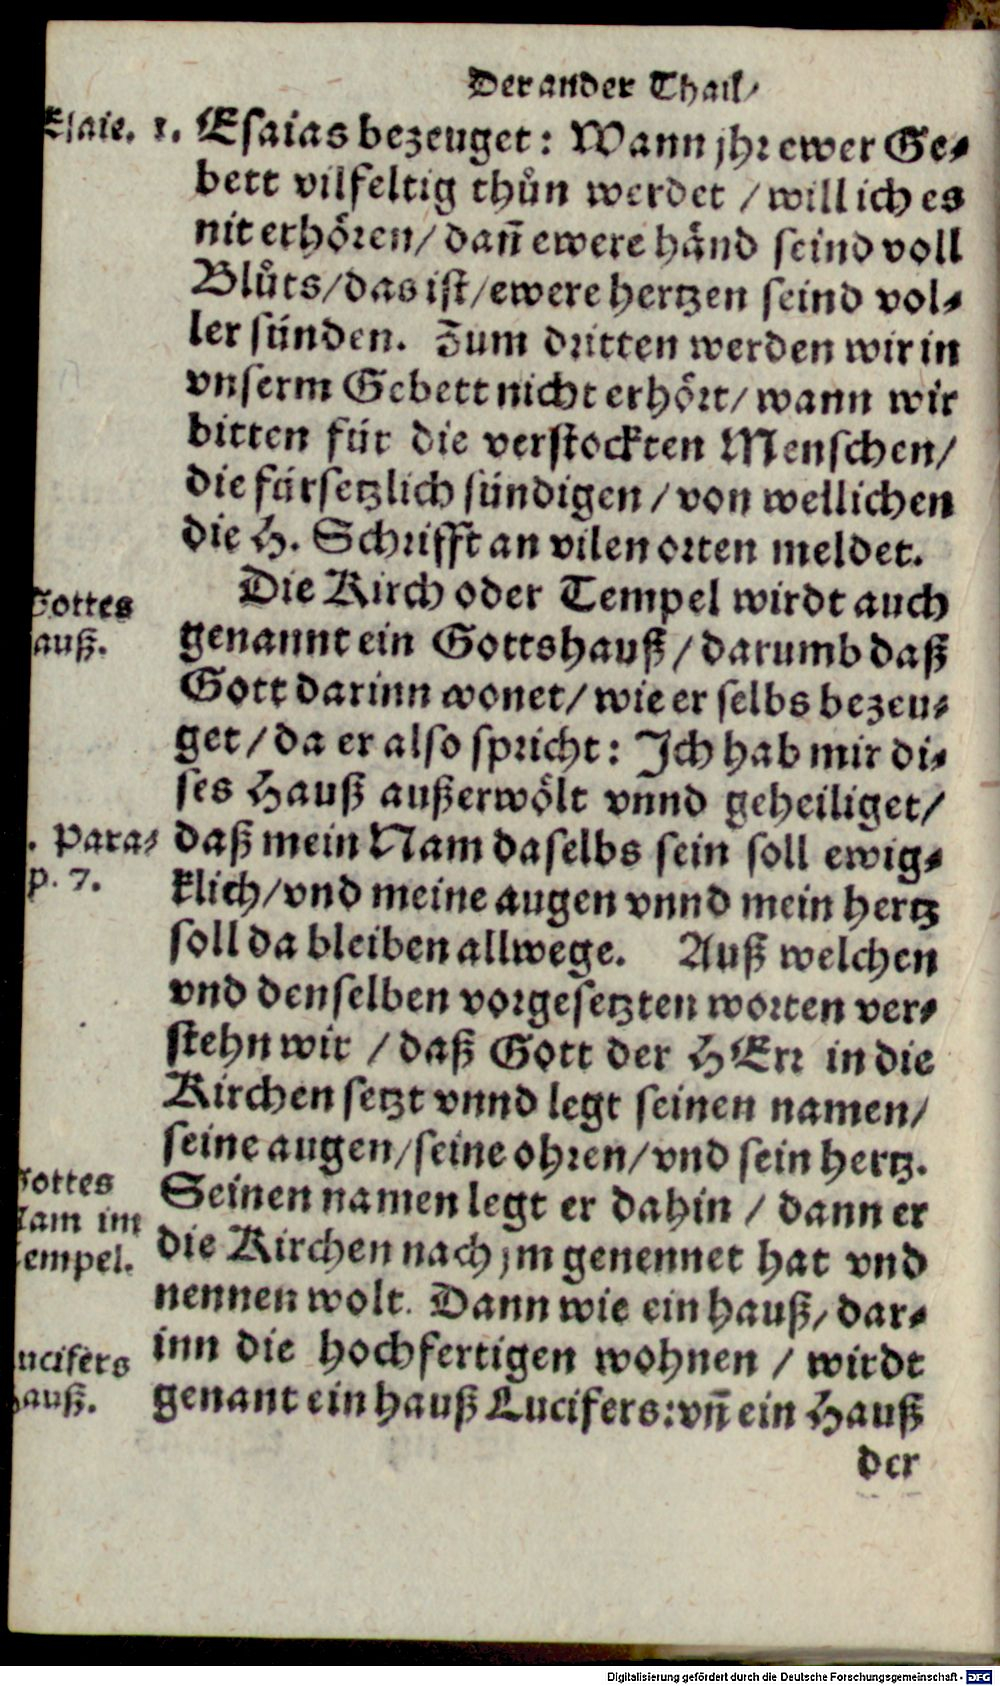 Der ander Thail/
Esaie. 1. Esaias bezeuget: Wann jhr ewer Ge-
bett vilfeltig thůn werdet / will ich es
nit erhören/ dañ ewere händ seind voll
Blůts/das ist/ewere hertzen seind vol-
ler sünden. Zum dritten werden wir in
vnserm Gebett nicht erhört/ wann wir
bitten für die verstockten Menschen/
die fürsetzlich sündigen / von wellichen
die H. Schrifft an vilen orten meldet.
Die Kirch oder Tempel wirdt auch
Gottes
genannt ein Gottshauß / darumb daß
auß.
Gott darinn wonet/ wie er selbs bezeu-
get / da er also spricht: Ich hab mir di-
ses Hauß außerwölt vnnd geheiliget/
. Para- daß mein Nam daselbs sein soll ewig-
p. 7. klich/vnd meine augen vnnd mein hertz
soll da bleiben allwege. Auß welchen
vnd denselben vorgesetzten worten ver-
stehn wir / daß Gott der HErr in die
Kirchen setzt vnnd legt seinen namen/
seine augen/seine ohren/vnd sein hertz.
Gottes
Seinen namen legt er dahin / dann er
Nam im
die Kirchen nach jm genennet hat vnd
empel.
nennen wolt. Dann wie ein hauß/ dar-
ucifers inn die hochfertigen wohnen / wirdt
auß. genant ein hauß Lucifers:vñ ein Hauß
der
Digitalisierung gefördert durch die Deutsche Forschungsgemeinschaft - DFG